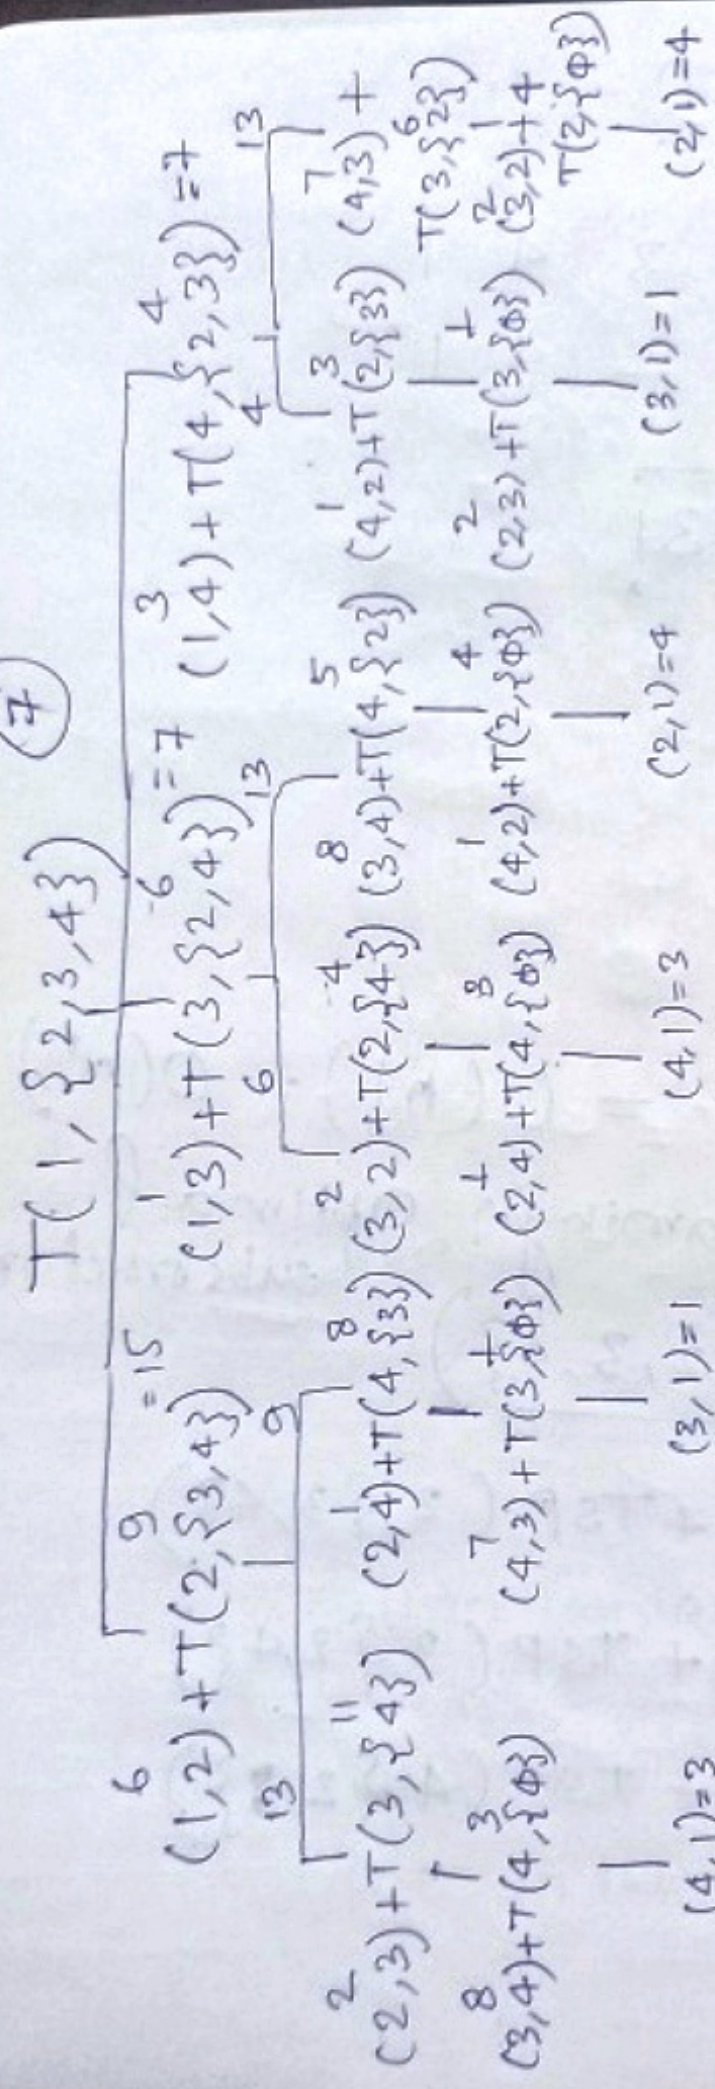 7
T(1,{2,3,4})
6 9 =15 1 6 =7 3 4
(1,2)+T(2,{3,4}) (1,3)+T(3,{2,4}) (1,4)+T(4,{2,3})=7
13 9 6 13 4 13
2 11 1 8 2 4 8 5 1 3 7
(2,3)+T(3,{4}) (2,4)+T(4,{3}) (3,2)+T(2,{4}) (3,4)+T(4,{2}) (4,2)+T(2,{3}) (4,3)+
6
T(3,{2})
8 3 7 1 1 8 1 4 2 1 2 1
(3,4)+T(4,{Φ}) (4,3)+T(3,{Φ}) (2,4)+T(4,{Φ}) (4,2)+T(2,{Φ}) (2,3)+T(3,{Φ}) (3,2)+4
T(2,{Φ})
(4,1)=3 (3,1)=1 (4,1)=3 (2,1)=4 (3,1)=1 (2,1)=4